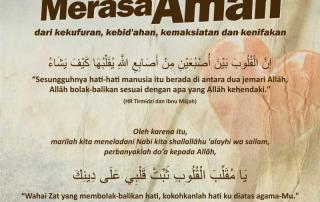 Merasa Aman
dari kekufuran, kebid'ahan, kemaksiatan dan kenifakan
إِنَّ الْقُلُوبَ بَيْنَ أَصْبُعَيْنِ مِنْ أَصَابِعِ اللَّهِ يُقَلِّبُهَا كَيْفَ يَشَاءُ
“Sesungguhnya hati-hati manusia itu berada di antara dua jemari Allâh,
Allâh bolak-balikan sesuai dengan apa yang Allâh kehendaki.”
(HR Tirmidzi dan Ibnu Mâjah)
Oleh karena itu,
marilah kita meneladani Nabi kita shallallâhu 'alayhi wa sallam,
perbanyaklah do'a kepada Allâh,
يَا مُقَلِّبَ الْقُلُوبِ ثَبِّتْ قَلْبِي عَلَى دِينِكَ
“Wahai Zat yang membolak-balikan hati, kokohkanlah hati ku diatas agama-Mu.”